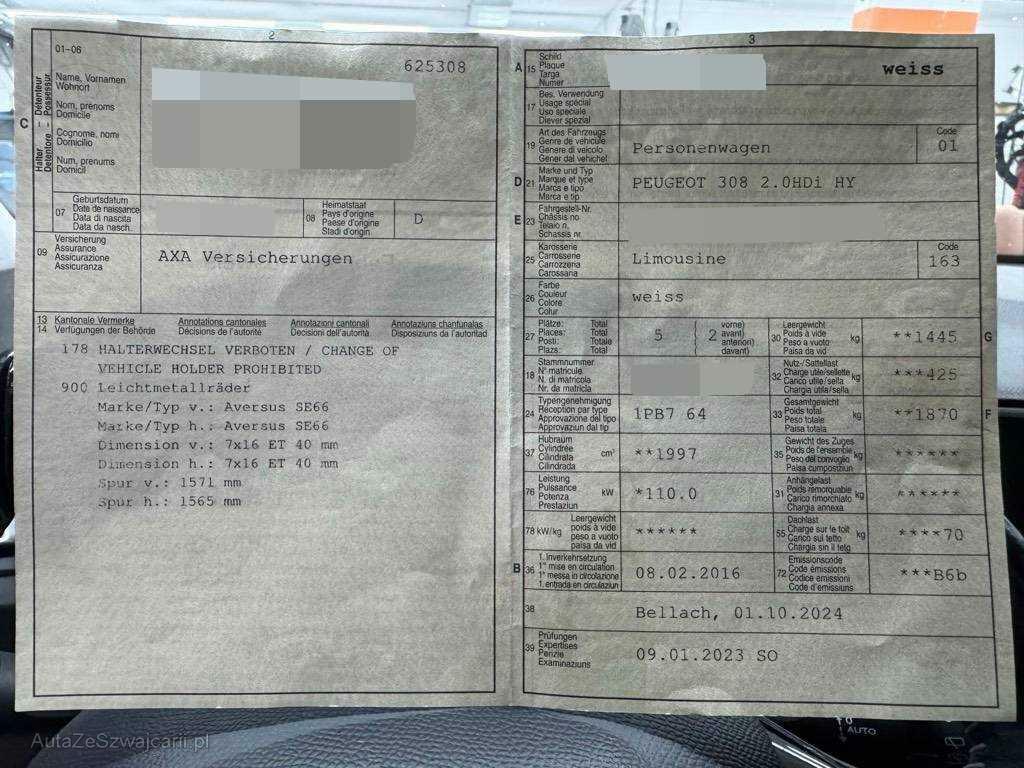 2
01-06
625308
C
Halter – Détenteur
Detentore – Possessur
Name, Vornamen
Wohnort
Nom, prénoms
Domicile
Cognome, nomi
Domicilio
Num, prenums
Domicil
07
Geburtsdatum
Date de naissance
Data di nascita
Data da nasch.
08
Heimatstaat
Pays d'origine
Paese d'origine
Stadi d'origin
D
09
Versicherung
Assurance
Assicurazione
Assicuranza
AXA Versicherungen
13 Kantonale Vermerke Annotations cantonales Annotazioni cantonali Annotaziuns chantunalas
14 Verfügungen der Behörde Décisions de l'autorité Decisioni dell'autorità Disposiziuns da l'autoritad
178 HALTERWECHSEL VERBOTEN / CHANGE OF
VEHICLE HOLDER PROHIBITED
900 Leichtmetallräder
Marke/Typ v.: Aversus SE66
Marke/Typ h.: Aversus SE66
Dimension v.: 7x16 ET 40 mm
Dimension h.: 7x16 ET 40 mm
Spur v.: 1571 mm
Spur h.: 1565 mm
3
A 15
Schild
Plaque
Targa
Numer
weiss
17
Bes. Verwendung
Usage spécial
Uso speciale
Diever spezial
19
Art des Fahrzeugs
Genre de véhicule
Genere di veicolo
Gener dal vehichel
Personenwagen
Code
01
D 21
Marke und Typ
Marque et type
Marca e tipo
Marca e tip
PEUGEOT 308 2.0HDi HY
E 23
Fahrgestell-Nr.
Châssis no
Telaio n.
Schassis nr.
25
Karosserie
Carrosserie
Carrozzeria
Carossaria
Limousine
Code
163
26
Farbe
Couleur
Colore
Colur
weiss
27
Plätze: Total
Places: Total
Posti: Totale
Plazs: Total
5
2
vorne)
avant)
anteriori)
davant)
30
Leergewicht
Poids à vide
Peso a vuoto
Paisa da vid
kg
**1445
G
18
Stammnummer
N° matricule
N. di matricola
Nr. da matricla
32
Nutz-/Sattellast
Charge utile/sellette
Carico utile/sella
Chargia utila/sella
kg
***425
24
Typengenehmigung
Réception par type
Approvazione del tipo
Approvaziun dal tip
1PB7 64
33
Gesamtgewicht
Poids total
Peso totale
Paisa totala
kg
**1870
F
37
Hubraum
Cylindrée
Cilindrata
Cilindrada
cm³
**1997
35
Gewicht des Zuges
Poids de l'ensemble
Peso del convoglio
Paisa cumposiziun
kg
******
76
Leistung
Puissance
Potenza
Prestaziun
kW
*110.0
31
Anhängelast
Poids remorquable
Carico rimorchiato
Chargia annexa
kg
******
78 kW/kg
Leergewicht
poids à vide
peso a vuoto
paisa da vid
******
55
Dachlast
Charge sur le toit
Carico sul tetto
Chargia sin il tetg
kg
****70
B 36
1. Inverkehrsetzung
1re mise en circulation
1a messa in circolazione
1. entrada en circulaziun
08.02.2016
72
Emissionscode
Code émissions
Codice emissioni
Code d'emissiuns
***B6b
38
Bellach, 01.10.2024
39
Prüfungen
Expertises
Perizie
Examinaziuns
09.01.2023 SO
AUTO
AutaZeSzwajcarii.pl